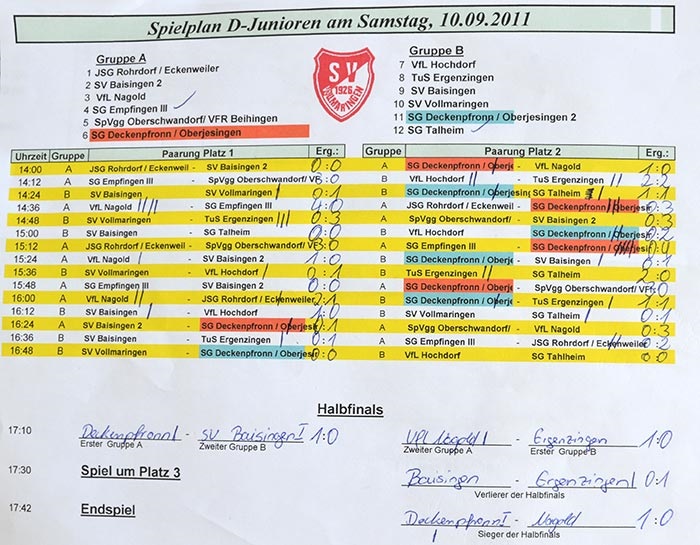 Spielplan D-Junioren am Samstag, 10.09.2011
Gruppe A
1 JSG Rohrdorf / Eckenweiler
2 SV Baisingen 2
3 VfL Nagold
4 SG Empfingen III
5 SpVgg Oberschwandorf/ VFR Beihingen
6 SG Deckenpfronn / Oberjesingen
SV
1926
VOLLMARINGEN
Gruppe B
7 VfL Hochdorf
8 TuS Ergenzingen
9 SV Baisingen
10 SV Vollmaringen
11 SG Deckenpfronn / Oberjesingen 2
12 SG Talheim
Uhrzeit Gruppe Paarung Platz 1 Erg.: Paarung Platz 2 Erg.:
14:00 A JSG Rohrdorf / Eckenweil - SV Baisingen 2 0:0 A SG Deckenpfronn / Oberje - VfL Nagold 1:0
14:12 A SG Empfingen III - SpVgg Oberschwandorf/ VF 0 B VfL Hochdorf - TuS Ergenzingen 2:0
14:24 B SV Baisingen - SV Vollmaringen 0:1 B SG Deckenpfronn / Oberjesin SG Talheim 1:1
14:36 A VfL Nagold - SG Empfingen III 4:0 A JSG Rohrdorf / Eckenweil SG Deckenpfronn / Oberjesi 0:3
14:48 B SV Vollmaringen - TuS Ergenzingen 0:3 A SpVgg Oberschwandorf/ VF - SV Baisingen 2 0:3
15:00 B SV Baisingen - SG Talheim 0:0 B VfL Hochdorf SG Deckenpfronn / Oberjesi 0:2
15:12 A JSG Rohrdorf / Eckenweil - SpVgg Oberschwandorf/ VF :0 A SG Empfingen III - SG Deckenpfronn / Oberjesi 0:4
15:24 A VfL Nagold - SV Baisingen 2 1:0 B SG Deckenpfronn / Oberje - SV Baisingen 0:1
15:36 B SV Vollmaringen - VfL Hochdorf 0:1 B TuS Ergenzingen - SG Talheim 2:0
15:48 A SG Empfingen III - SV Baisingen 2 0:0 A SG Deckenpfronn / Oberje - SpVgg Oberschwandorf/ VF :0
16:00 A VfL Nagold - JSG Rohrdorf / Eckenweiler 2:1 B SG Deckenpfronn / Oberje - TuS Ergenzingen 1:1
16:12 B SV Baisingen - VfL Hochdorf 1:0 B SV Vollmaringen - SG Talheim 0:1
16:24 A SV Baisingen 2 - SG Deckenpfronn / Oberjesi :1 A SpVgg Oberschwandorf/ VF - VfL Nagold 0:3
16:36 B SV Baisingen - TuS Ergenzingen 0:1 A SG Empfingen III - JSG Rohrdorf / Eckenweiler 0:2
16:48 B SV Vollmaringen - SG Deckenpfronn / Oberjesi 0:0 B VfL Hochdorf - SG Tahlheim 0:0
Halbfinals
17:10 Deckenpfronn I - SV Baisingen I 1:0 VfL Nagold - Ergenzingen 1:0
Erster Gruppe A Zweiter Gruppe B Zweiter Gruppe A Erster Gruppe B
17:30 Spiel um Platz 3 Baisingen - Ergenzingen 0:1
Verlierer der Halbfinals
17:42 Endspiel Deckenpfronn I - Nagold 1:0
Sieger der Halbfinals